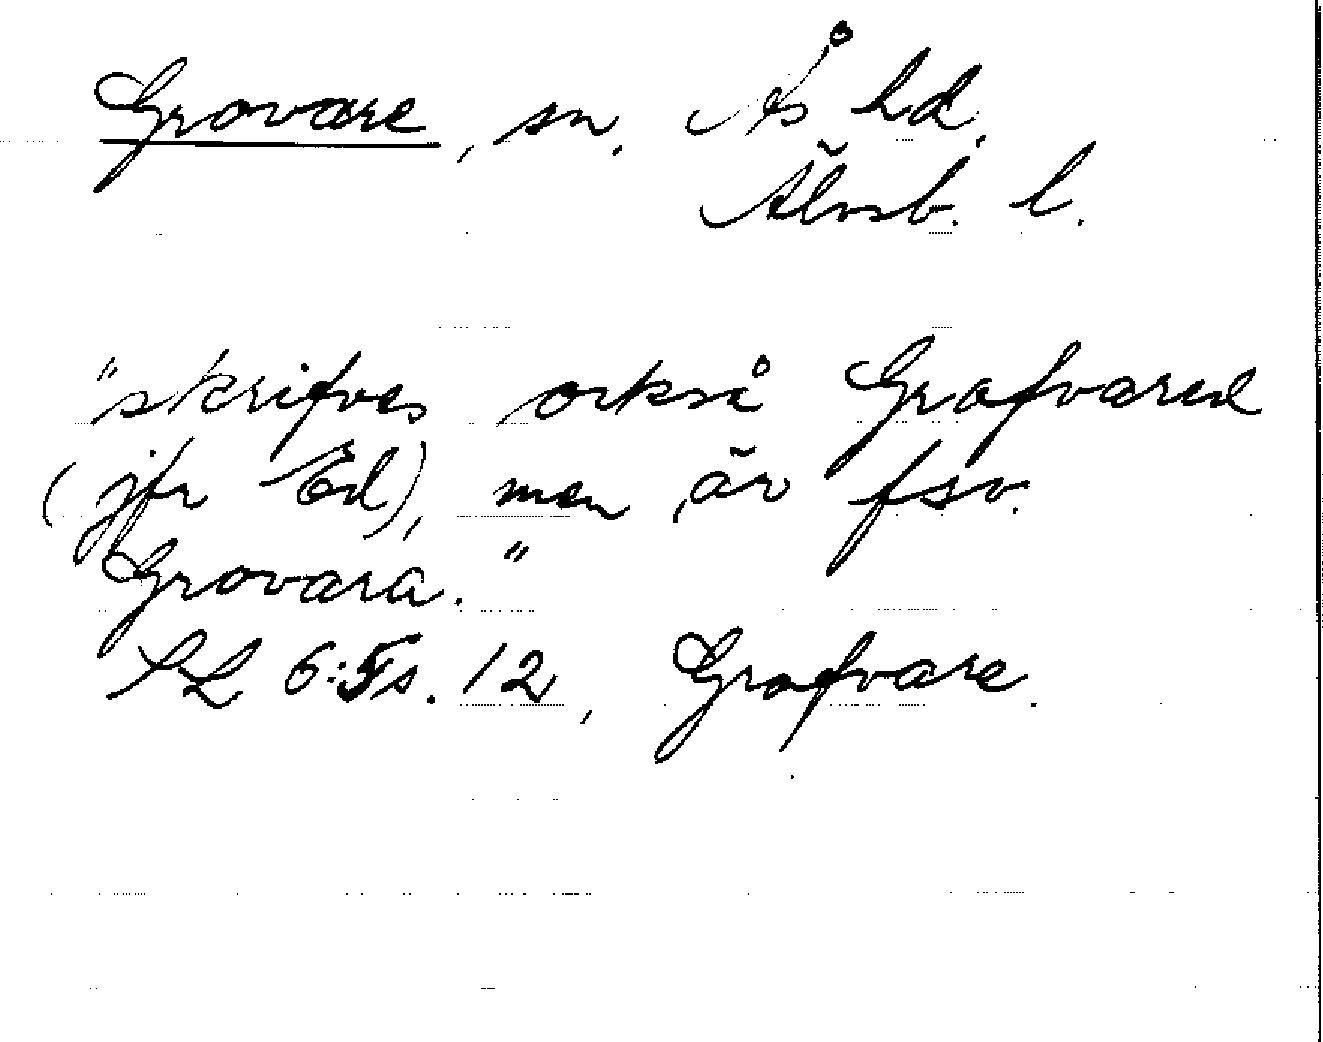 Grovare, sn. Ås hd.
Älvsb. l.
"skrifves också Grafvared
(jfr Ed), men är fsv.
Grovara."
SL 6:5 s. 12, Grofvare.